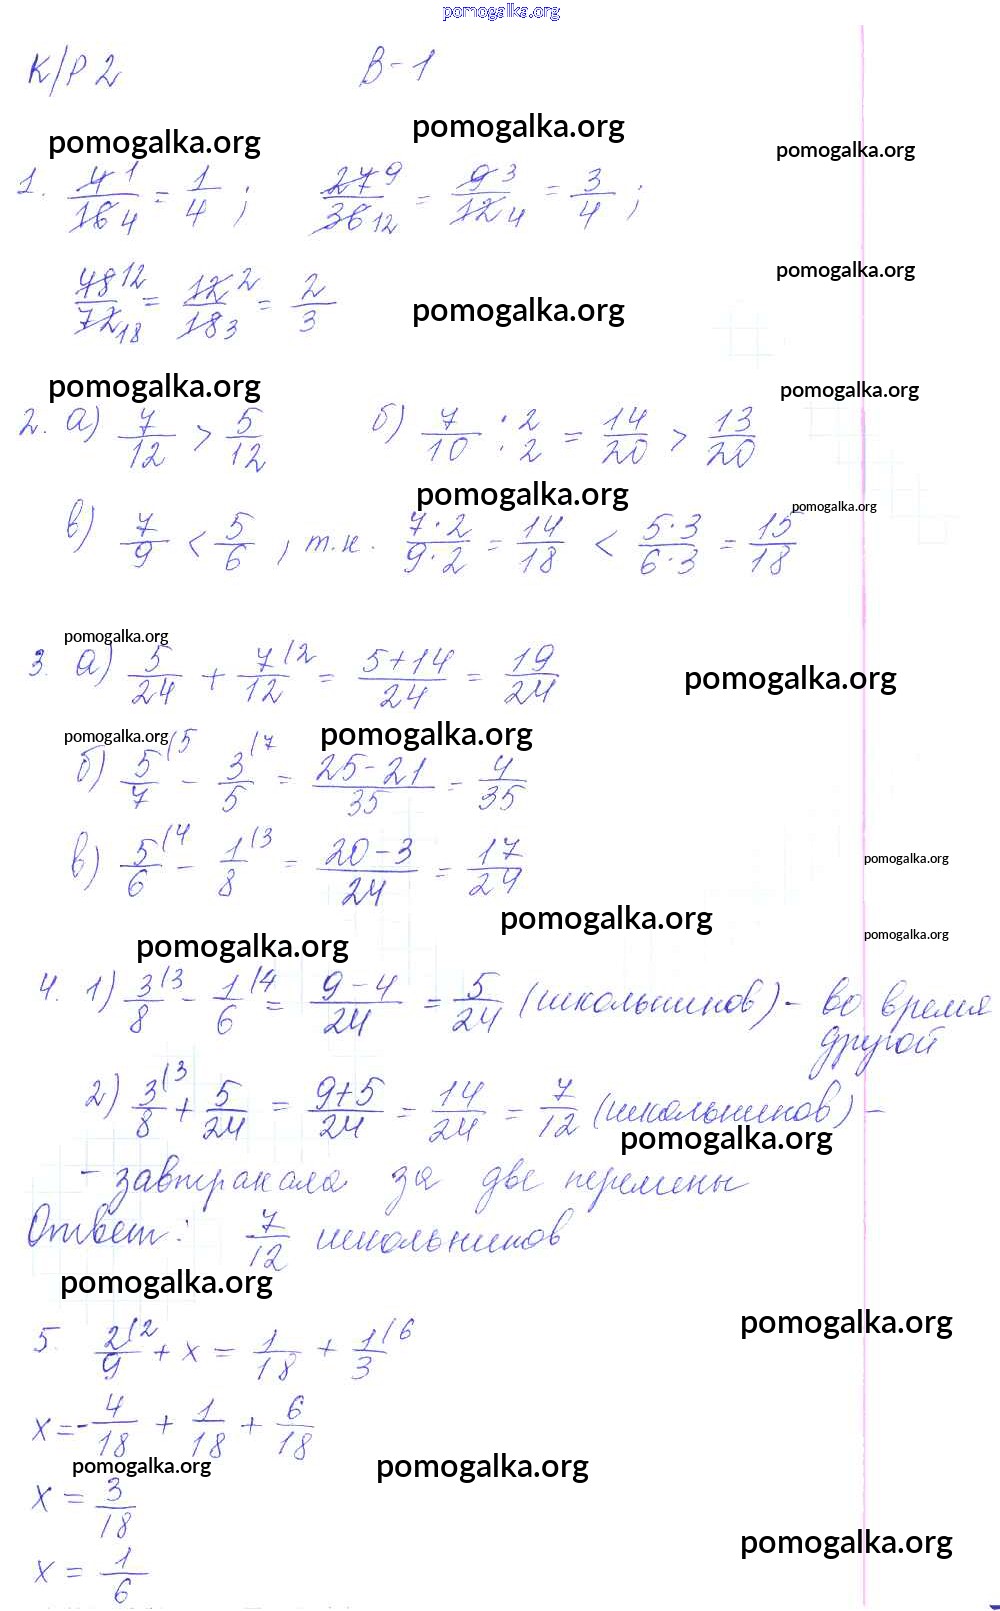 pomogalka.org
К/Р 2 В-1
pomogalka.org pomogalka.org pomogalka.org
1. 4 1/16 4 = 1/4 ; 27 9/36 12 = 9 3/12 4 = 3/4 ;
pomogalka.org
48 12/72 18 = 12 2/18 3 = 2/3
pomogalka.org
pomogalka.org pomogalka.org
2. а) 7/12 > 5/12 б) 7/10 · 2/2 = 14/20 > 13/20
pomogalka.org pomogalka.org
в) 7/9 < 5/6 ; т.к. 7·2/9·2 = 14/18 < 5·3/6·3 = 15/18
pomogalka.org
3. а) 5/24 + 7/12 (2 = 5+14/24 = 19/24
pomogalka.org
pomogalka.org pomogalka.org
б) 5/7 (5 - 3/5 (7 = 25-21/35 = 4/35
в) 5/6 (4 - 1/8 (3 = 20-3/24 = 17/24
pomogalka.org
pomogalka.org
pomogalka.org pomogalka.org
4. 1) 3/8 (3 - 1/6 (4 = 9-4/24 = 5/24 (школьников) - во время
другой
2) 3/8 (3 + 5/24 = 9+5/24 = 14/24 = 7/12 (школьников) -
pomogalka.org
- завтракала за две перемены
Ответ: 7/12 школьников
pomogalka.org
pomogalka.org
5. 2/9 (2 + x = 1/18 + 1/3 (6
x = - 4/18 + 1/18 + 6/18
pomogalka.org pomogalka.org
x = 3/18
pomogalka.org
x = 1/6